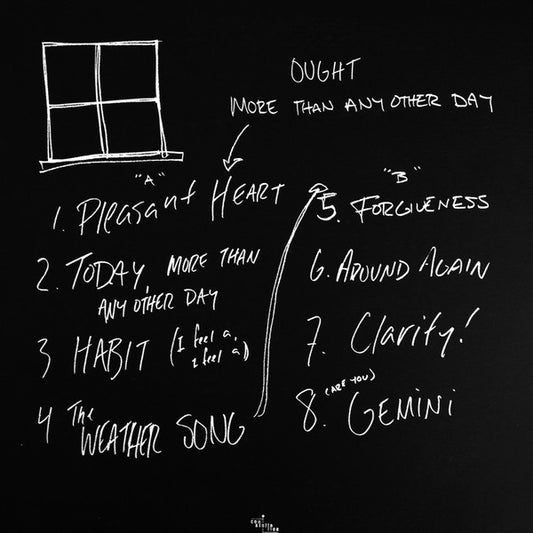 OUGHT
MORE THAN ANY OTHER DAY
"A"
1. Pleasant HEART
2. TODAY, MORE THAN
ANY OTHER DAY
3 HABIT (I feel a,
I feel a)
4 The
WEATHER SONG
"B"
5. FORGIVENESS
6. AROUND AGAIN
7. Clarity!
8. (ARE YOU)
GEMINI